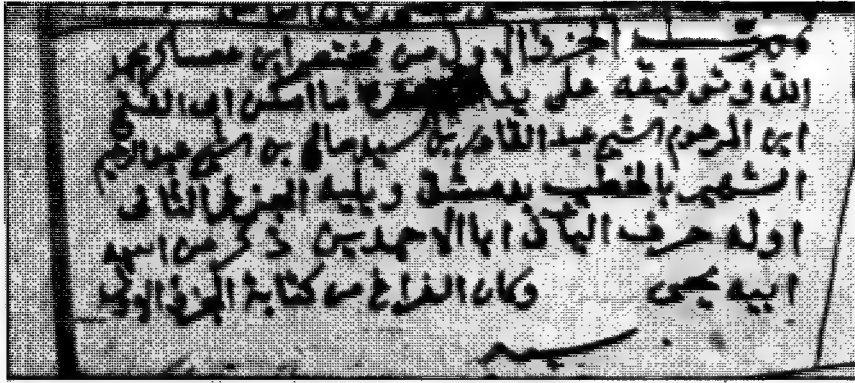 الجزء الاول من مختصر ابن عساكر بحمد
الله وتوفيقه على يد ما امكن ابى الفتح
ابن المرحوم الشيخ عبد القادر بن السيد صالح بن الشيخ عبد الرحيم
الشهير بالخطيب بدمشق ويليه الجزء الثانى
اوله حرف فى ابا الاحمدين ذكر من اسم
ابيه يحيى وكان الفراغ من كتابة الجزء الاول